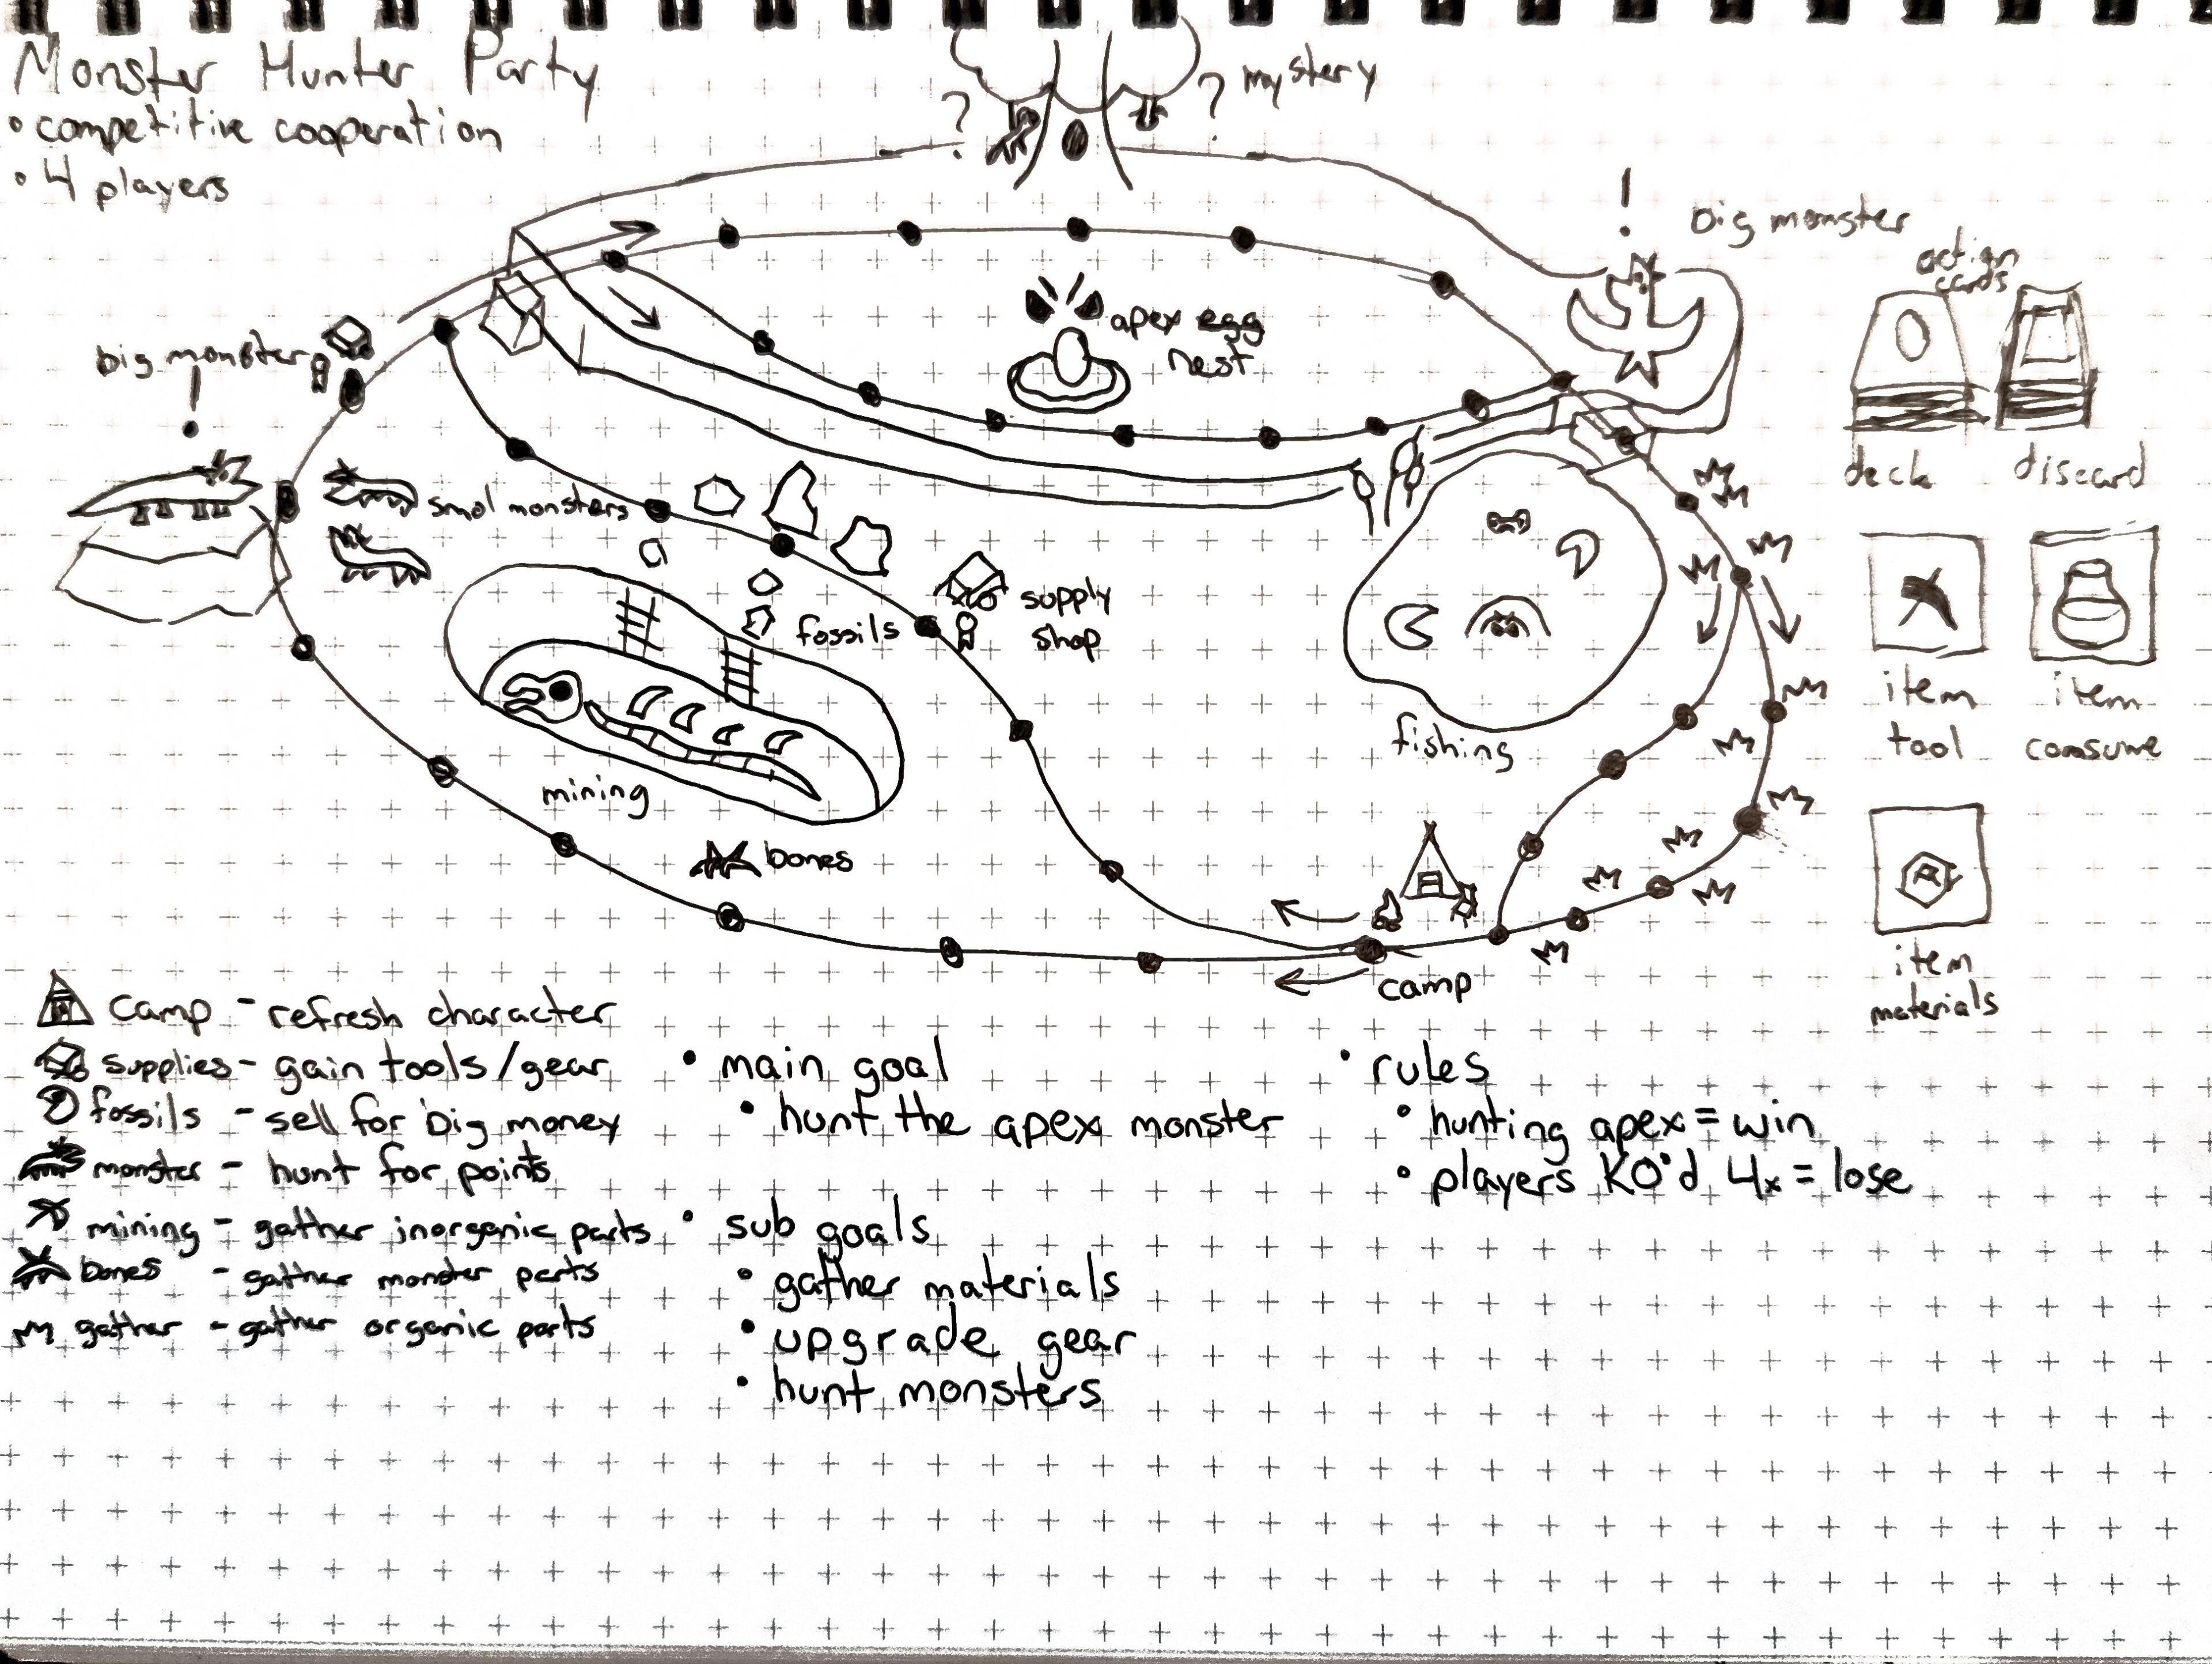 Monster Hunter Party
• competitive cooperation
• 4 players
? ? mystery
! big monster
action cards
deck
discard
apex egg nest
big monster
!
smol monsters
fossils
supply shop
mining
bones
fishing
camp
item tool
item consume
item materials
camp - refresh character
supplies - gain tools/gear
fossils - sell for big money
monster - hunt for points
mining - gather inorganic parts
bones - gather monster parts
gather - gather organic parts
• main goal
• hunt the apex monster
• sub goals
• gather materials
• upgrade gear
• hunt monsters
• rules
• hunting apex = win
• players KO'd 4x = lose